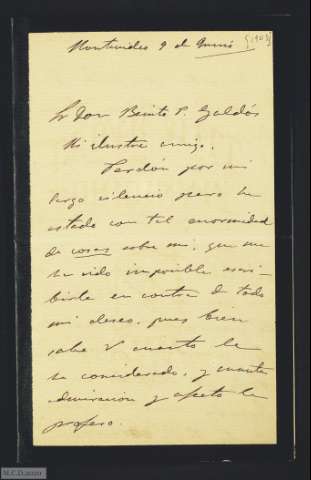 Montevideo 9 de Junio [1903]
Sr Don Benito P. Galdós
Mi ilustre amigo.
Perdón por mi
largo silencio pero he
estado con tal enormidad
de cosas sobre mi, que me
ha sido imposible escri-
birle en contra de todo
mi deseo, pues bien
sabe V cuanto le
he considerado, y cuanta
admiracion y afecto le
profeso.
M.C.D. 2020